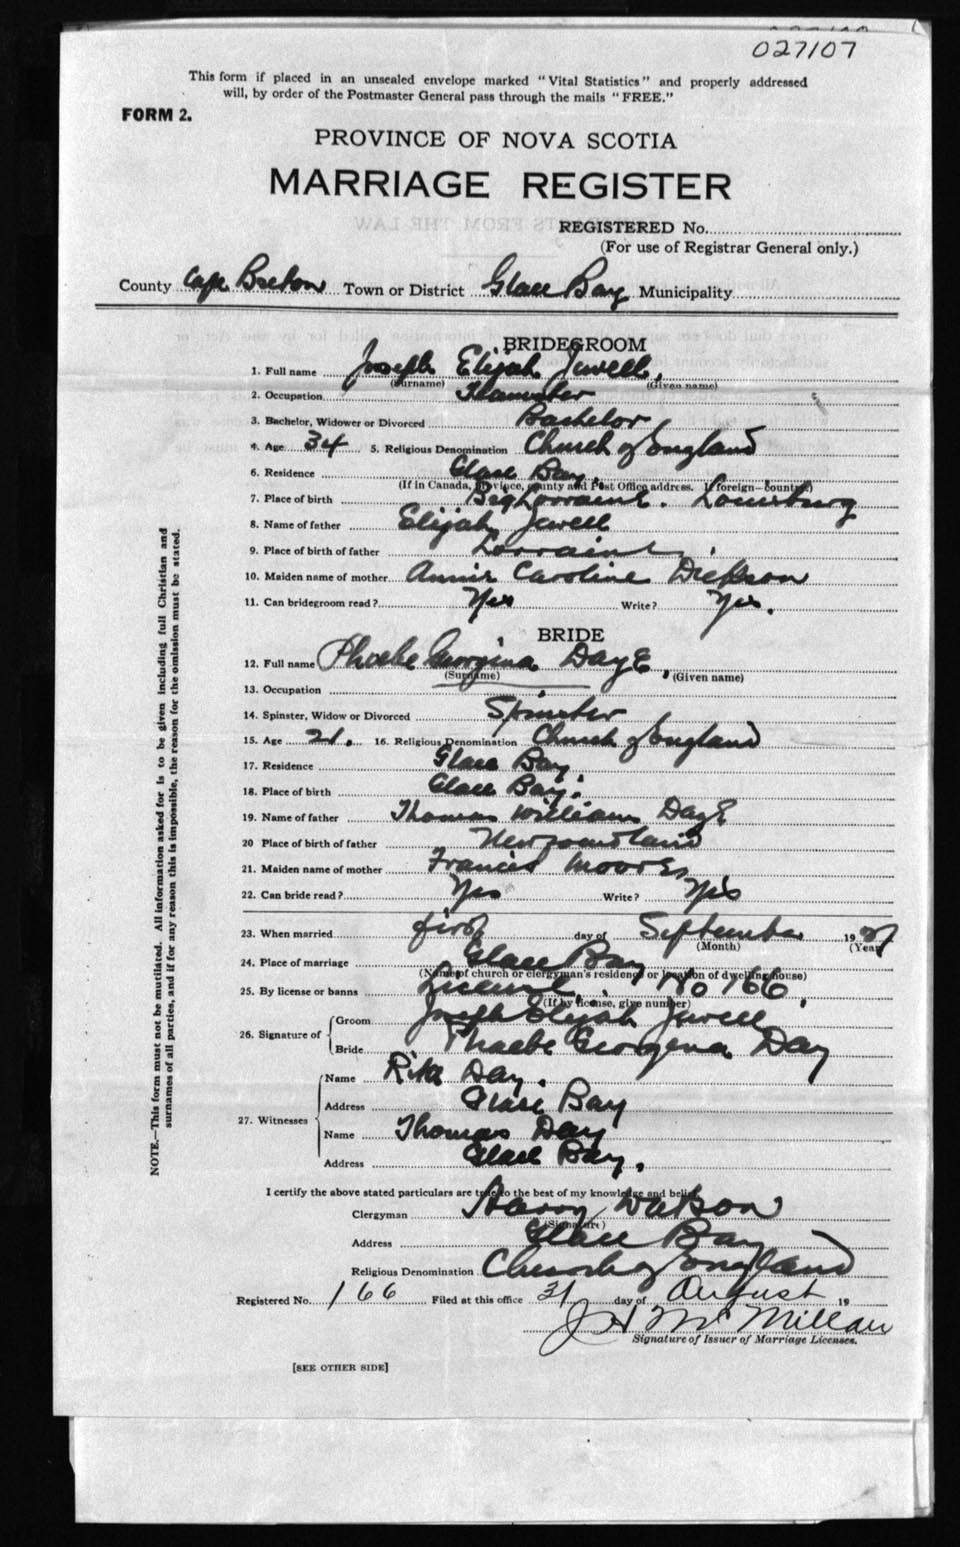 027107
This form if placed in an unsealed envelope marked "Vital Statistics" and properly addressed
will, by order of the Postmaster General pass through the mails "FREE."
FORM 2.
PROVINCE OF NOVA SCOTIA
MARRIAGE REGISTER
REGISTERED No.
(For use of Registrar General only.)
County Cape Breton Town or District Glace Bay Municipality
BRIDEGROOM
1. Full name Joseph Elijah Jewell,
(Surname) (Given name)
2. Occupation Teamster
3. Bachelor, Widower or Divorced Bachelor
4. Age 34 5. Religious Denomination Church of England
6. Residence Glace Bay.
(If in Canada, province, county and Post Office address. If foreign—country)
7. Place of birth Big Lorraine. Louisburg
8. Name of father Elijah Jewell
9. Place of birth of father Lorraine.
10. Maiden name of mother Annie Caroline Dickson
11. Can bridegroom read? Yes Write? Yes.
BRIDE
12. Full name Phoebe Georgina DayE,
(Surname) (Given name)
13. Occupation
14. Spinster, Widow or Divorced Spinster
15. Age 21. 16. Religious Denomination Church of England
17. Residence Glace Bay.
18. Place of birth Glace Bay.
19. Name of father Thomas William DayE
20 Place of birth of father Newfoundland
21. Maiden name of mother Frances Moores
22. Can bride read? Yes Write? Yes
23. When married first day of September 19
(Month) (Year)
24. Place of marriage Glace Bay
(Name of church or clergyman's residence or location of dwelling house)
25. By license or banns License No 166.
(If by license, give number)
26. Signature of Groom Joseph Elijah Jewell
Bride Phaebe Georgena Day
27. Witnesses Name Rita Day.
Address Glace Bay
Name Thomas Day
Address Glace Bay.
I certify the above stated particulars are true to the best of my knowledge and belief.
Clergyman Harry Watson
(Signature)
Address Glace Bay
Religious Denomination Church of England
Registered No. 166 Filed at this office 31 day of August 19
J H McMillan
Signature of Issuer of Marriage Licenses.
[SEE OTHER SIDE]
NOTE.—This form must not be mutilated. All information asked for is to be given including full Christian and
surnames of all parties, and if for any reason this is impossible, the reason for the omission must be stated.